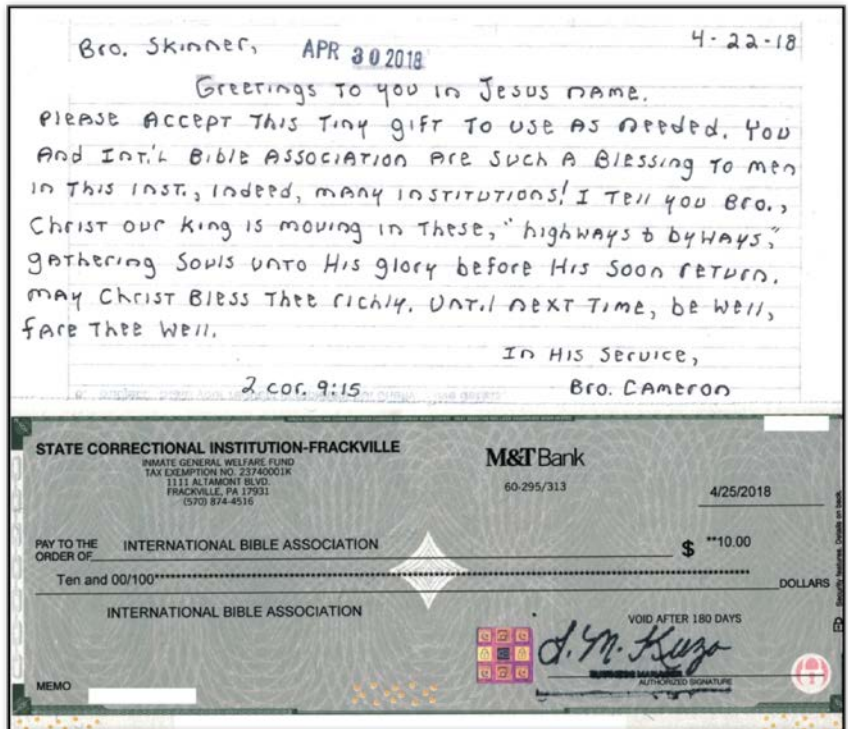 4-22-18
Bro. Skinner,
APR 30 2018
Greetings to you in Jesus name.
Please accept this tiny gift to use as needed. You
and Int.'l Bible Association are such a blessing to men
in this inst., indeed, many institutions! I tell you Bro.,
Christ our King is moving in these, "highways & byways,"
gathering souls unto His glory before His soon return.
May Christ bless thee richly. Until next time, be well,
fare thee well.
In His Service,
2 Cor. 9:15
Bro. Cameron
STATE CORRECTIONAL INSTITUTION-FRACKVILLE
INMATE GENERAL WELFARE FUND
TAX EXEMPTION NO. 23740001K
1111 ALTAMONT BLVD.
FRACKVILLE, PA 17931
(570) 874-4516
M&T Bank
60-295/313
4/25/2018
PAY TO THE
ORDER OF
INTERNATIONAL BIBLE ASSOCIATION
$ **10.00
Ten and 00/100
DOLLARS
INTERNATIONAL BIBLE ASSOCIATION
VOID AFTER 180 DAYS
BUSINESS MANAGER
AUTHORIZED SIGNATURE
MEMO
Security features. Details on back.